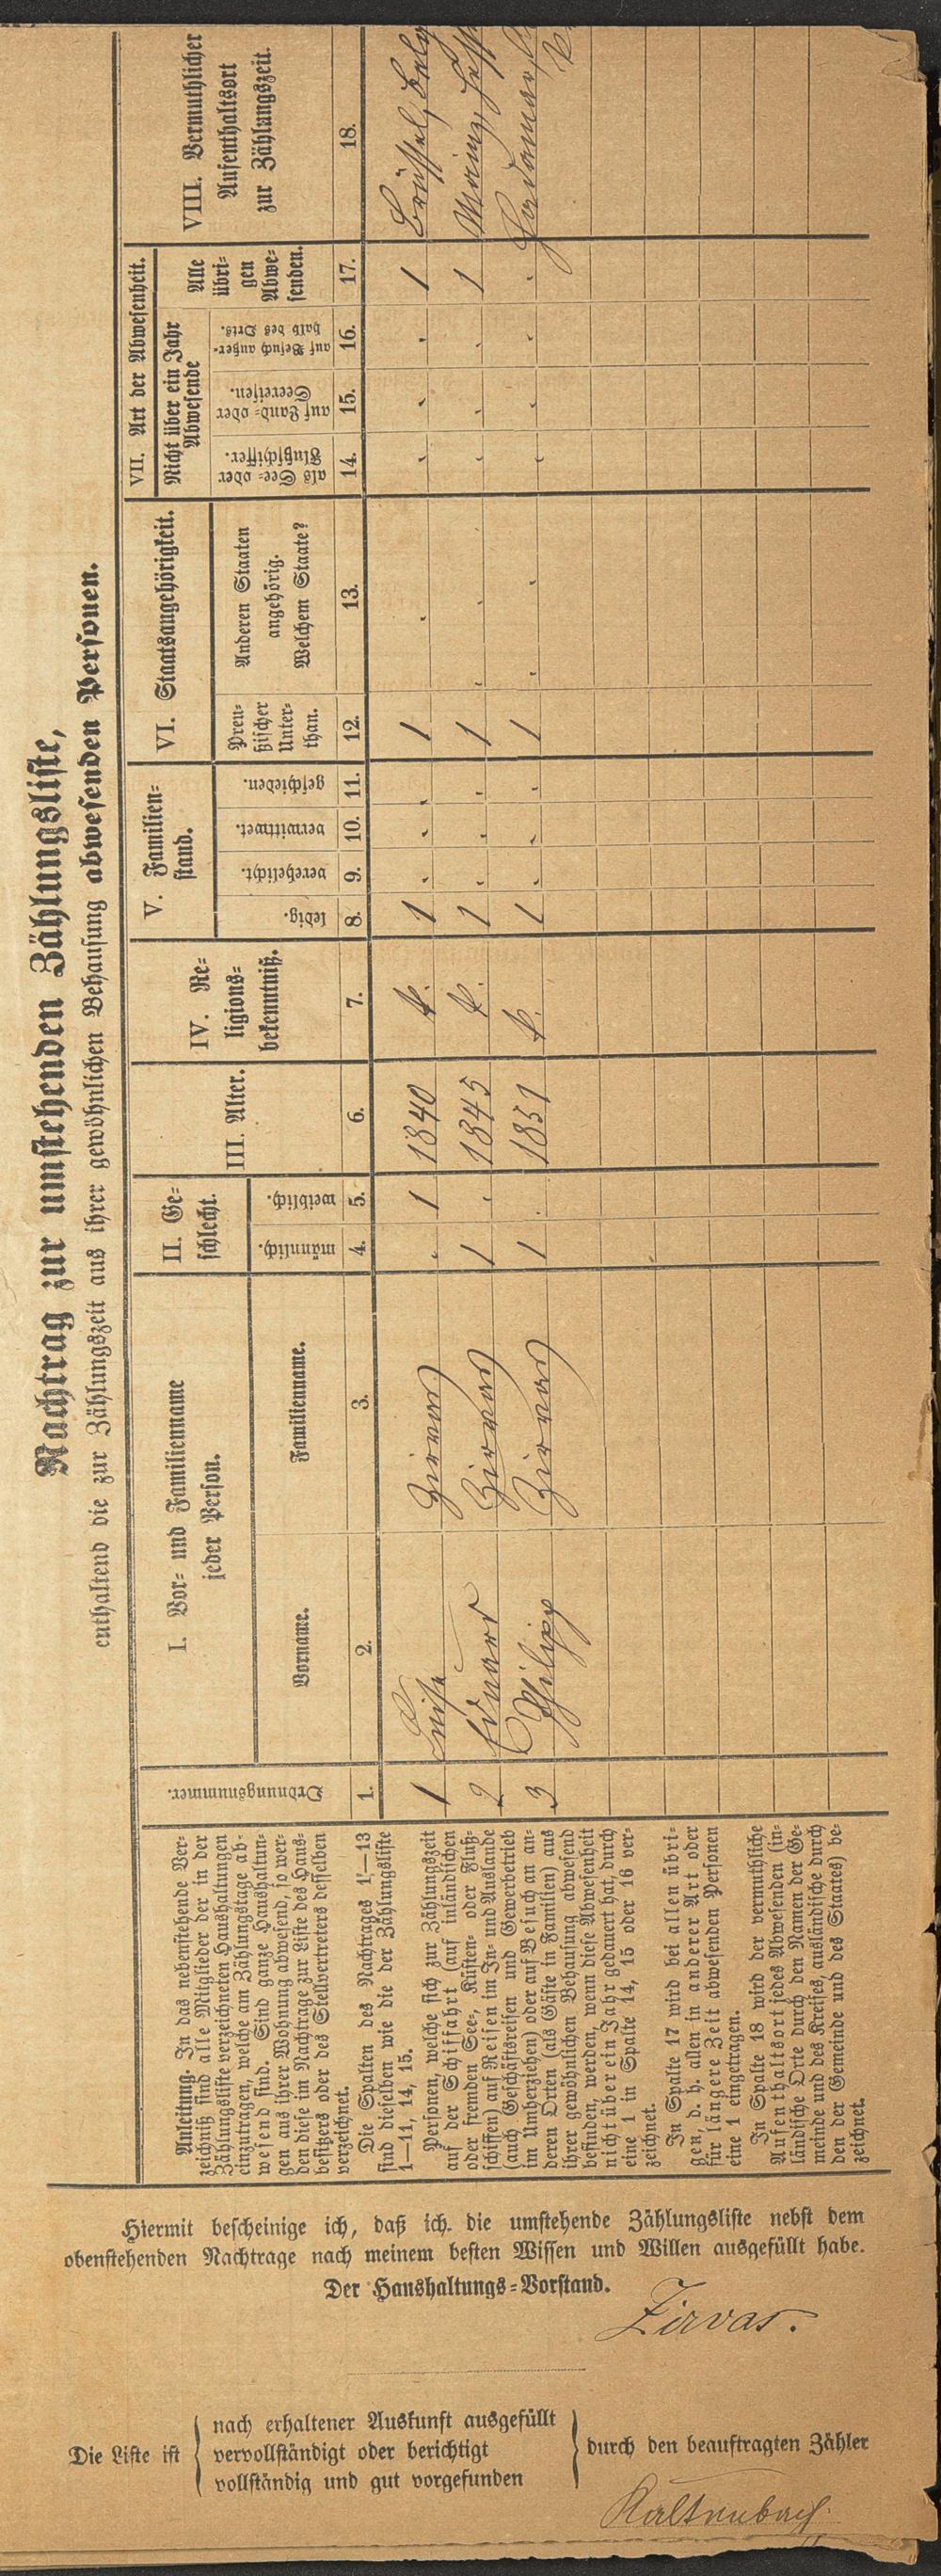 Nachtrag zur umstehenden Zählungsliste,
enthaltend die zur Zählungszeit aus ihrer gewöhnlichen Behausung abwesenden Personen.
Anleitung. In das nebenstehende Ver-
zeichniß sind alle Mitglieder der in der
Zählungsliste verzeichneten Haushaltungen
einzutragen, welche am Zählungstage ab-
wesend sind. Sind ganze Haushaltun-
gen aus ihrer Wohnung abwesend, so wer-
den diese im Nachtrage zur Liste des Haus-
besitzers oder des Stellvertreters desselben
verzeichnet.
Die Spalten des Nachtrages 1—13
sind dieselben wie die der Zählungsliste
1—11, 14, 15.
Personen, welche sich zur Zählungszeit
auf der Schiffahrt (auf inländischen
oder fremden See-, Küsten- oder Fluß-
schiffen) auf Reisen im In- und Auslande
(auch Geschäftsreisen und Gewerbebetrieb
im Umherziehen) oder auf Besuch an an-
deren Orten (als Gäste in Familien) aus
ihrer gewöhnlichen Behausung abwesend
befinden, werden, wenn diese Abwesenheit
nicht über ein Jahr gedauert hat, durch
eine 1 in Spalte 14, 15 oder 16 ver-
zeichnet.
In Spalte 17 wird bei allen übri-
gen, d. h. allen in anderer Art oder
für längere Zeit abwesenden Personen
eine 1 eingetragen.
In Spalte 18 wird der vermuthliche
Aufenthaltsort jedes Abwesenden (in-
ländische Orte durch den Namen der Ge-
meinde und des Kreises, ausländische durch
den der Gemeinde und des Staates) be-
zeichnet.
Ordnungsnummer.
I. Vor- und Familienname
jeder Person.
Vorname.
Familienname.
II. Ge-
schlecht.
männlich.
weiblich.
III. Alter.
IV. Re-
ligions-
bekenntniß.
V. Familien-
stand.
ledig.
verehelicht.
verwittwet.
geschieden.
VI. Staatsangehörigkeit.
Preu-
ßischer
Unter-
than.
Anderen Staaten
angehörig.
Welchem Staate?
VII. Art der Abwesenheit.
Nicht über ein Jahr
Abwesende
als See- oder
Flußschiffer.
auf Land- oder
Seereisen.
auf Besuch außer-
halb des Orts.
Alle
übri-
gen
Abwe-
senden.
VIII. Vermuthlicher
Aufenthaltsort
zur Zählungszeit.
1. 2. 3. 4. 5. 6. 7. 8. 9. 10. 11. 12. 13. 14. 15. 16. 17. 18.
1 Luise Zirvas . 1 1840 k. 1 . . . 1 . . . . 1 Brüssel, Belg
2 Eduard Zirvas 1 . 1845 k. 1 . . . 1 . . . . 1 Mainz, Hess
3 Philipp Zirvas 1 . 1851 k. 1 . . . 1 . . . . . Hadamar
Hiermit bescheinige ich, daß ich die umstehende Zählungsliste nebst dem
obenstehenden Nachtrage nach meinem besten Wissen und Willen ausgefüllt habe.
Der Haushaltungs-Vorstand.
Zirvas.
Die Liste ist
nach erhaltener Auskunft ausgefüllt
vervollständigt oder berichtigt
vollständig und gut vorgefunden
durch den beauftragten Zähler
Kaltenbach.